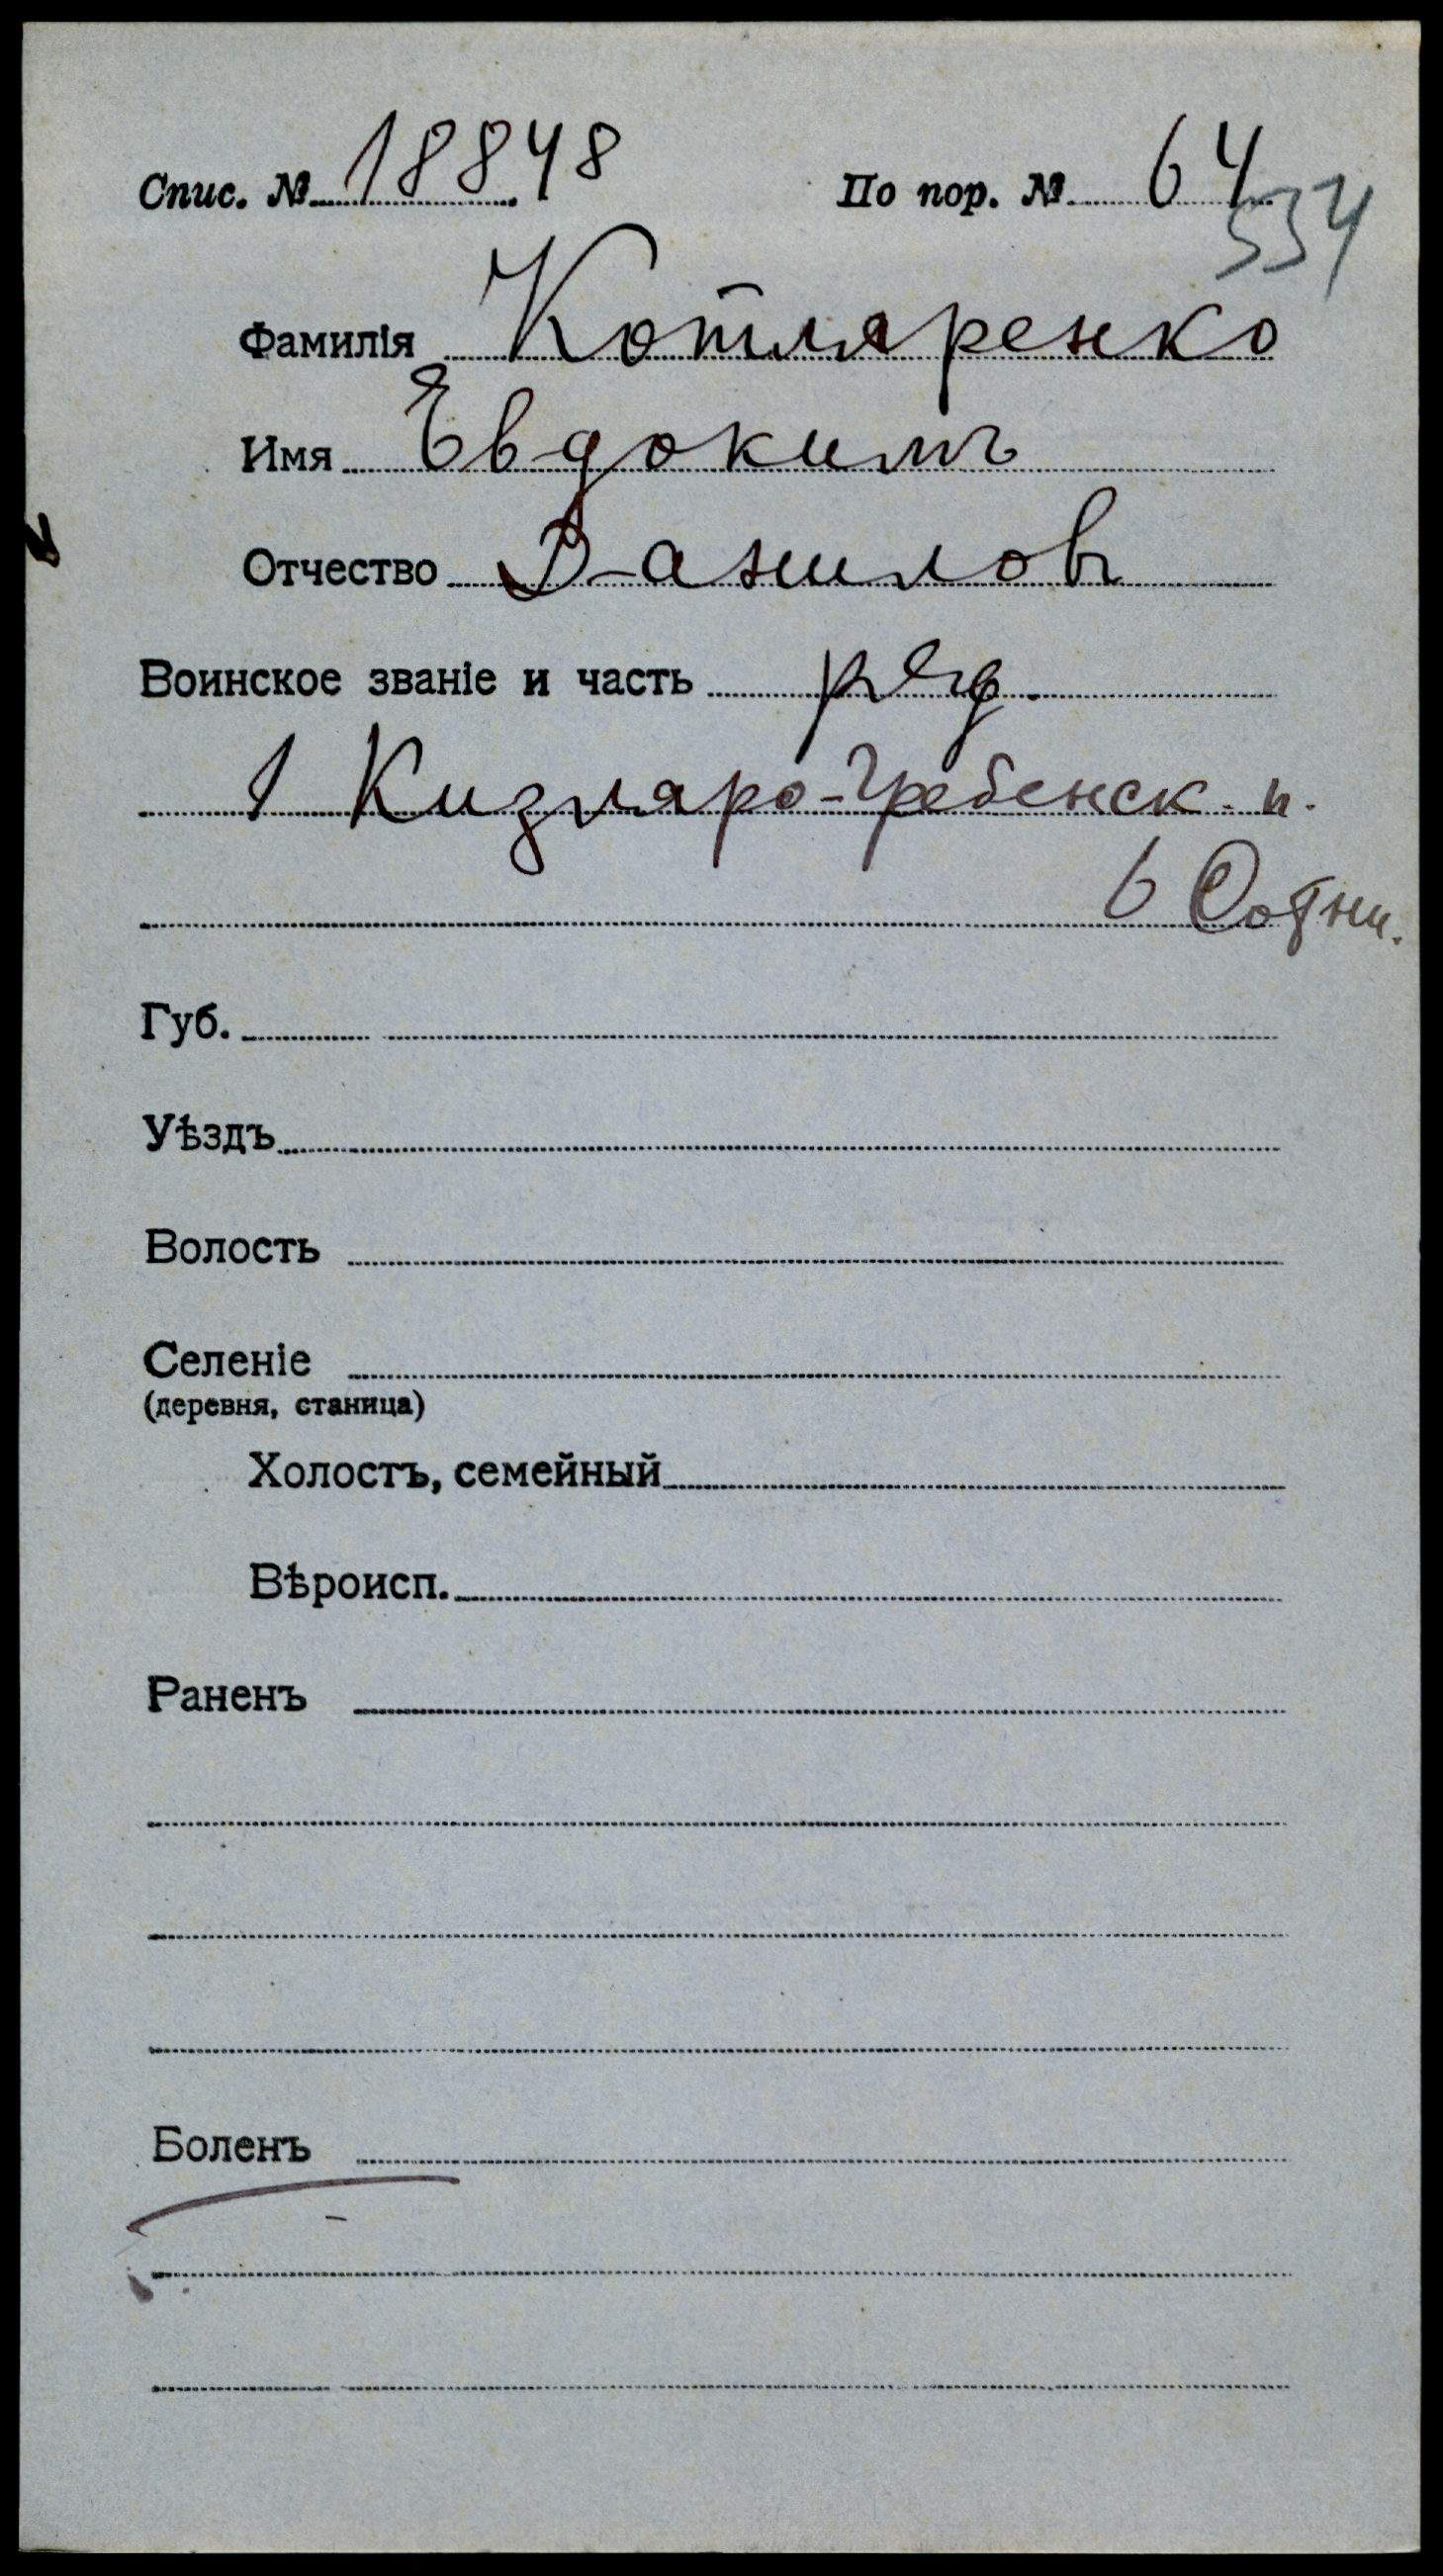 Спис. № 18848 По пор. № 64
534
Фамилія Котляренко
Имя Евдокимъ
Отчество Данилов
Воинское званіе и часть ряд.
1 Кизляро-Гребенск. п.
6 Сотни.
Губ.
Уѣздъ
Волость
Селеніе
(деревня, станица)
Холостъ, семейный
Вѣроисп.
Раненъ
Боленъ